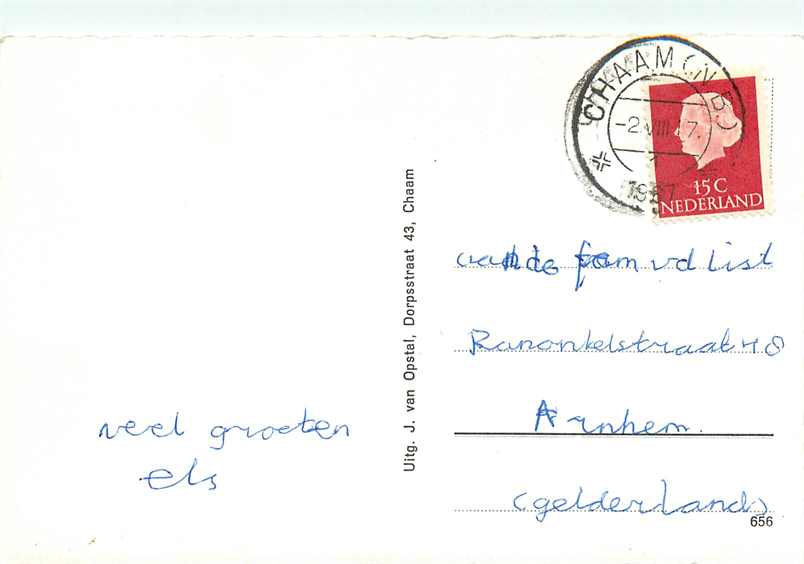 CHAAM (N.B.)
-2.VIII.17.
1967
15 C
NEDERLAND
veel groeten
els
Uitg. J. van Opstal, Dorpsstraat 43, Chaam
aan de fam vd List
Ranonkelstraat 48
Arnhem.
(gelderland)
656